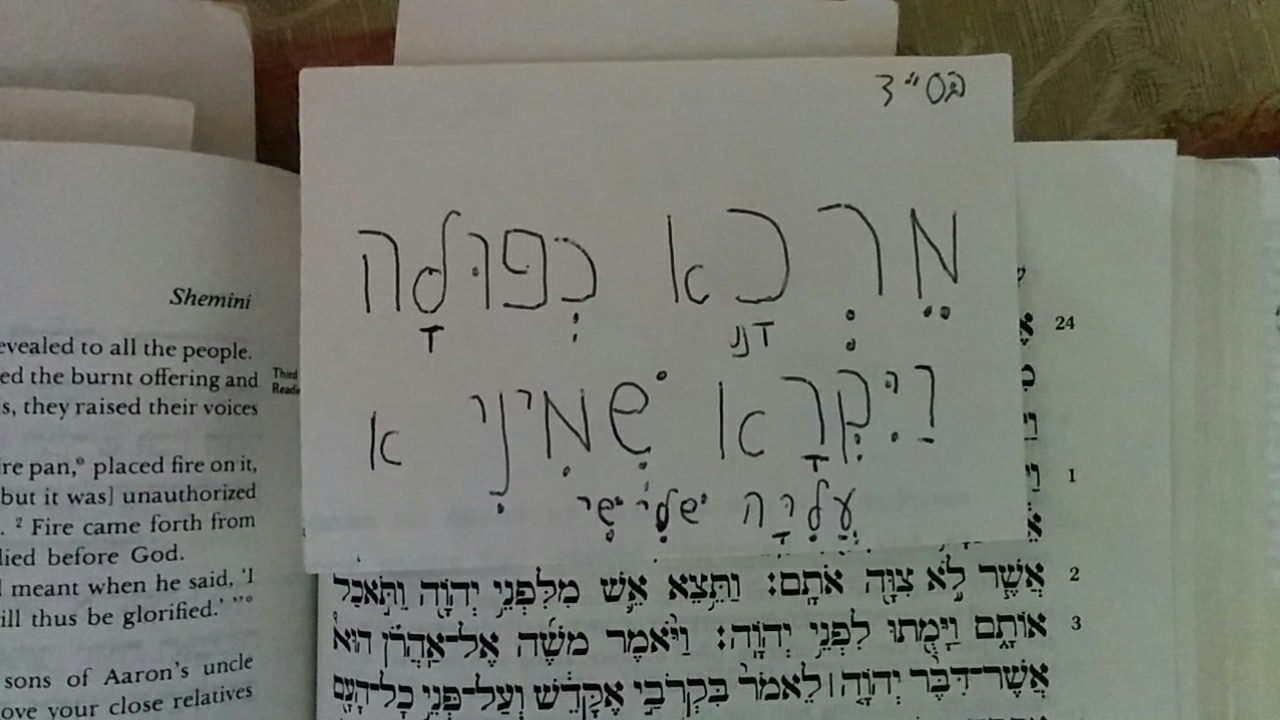 בס"ד
מֵרְכָא כְּפוּלָה
וַיִּקְרָא שְׁמִינִי א
עֲלִיָּה שְׁלִישִׁי
Shemini
evealed to all the people.
ed the burnt offering and
s, they raised their voices
Third
ire pan,° placed fire on it,
but it was] unauthorized
. ² Fire came forth from
lied before God.
l meant when he said, 'I
ill thus be glorified.' ”°
sons of Aaron's uncle
ove your close relatives
24
1
אֲשֶׁר לֹ֦א צִוָּ֖ה אֹתָֽם׃ וַתֵּ֥צֵא אֵ֛שׁ מִלִּפְנֵ֥י יְהוָ֖ה וַתֹּ֣אכַל 2
אוֹתָ֑ם וַיָּמֻ֖תוּ לִפְנֵ֥י יְהוָֽה׃ וַיֹּ֨אמֶר מֹשֶׁ֜ה אֶֽל־אַהֲרֹ֗ן הוּא֩ 3
אֲשֶׁר־דִּבֶּ֨ר יְהוָ֤ה ׀ לֵאמֹר֙ בִּקְרֹבַ֣י אֶקָּדֵ֔שׁ וְעַל־פְּנֵ֥י כָל־הָעָ֖ם